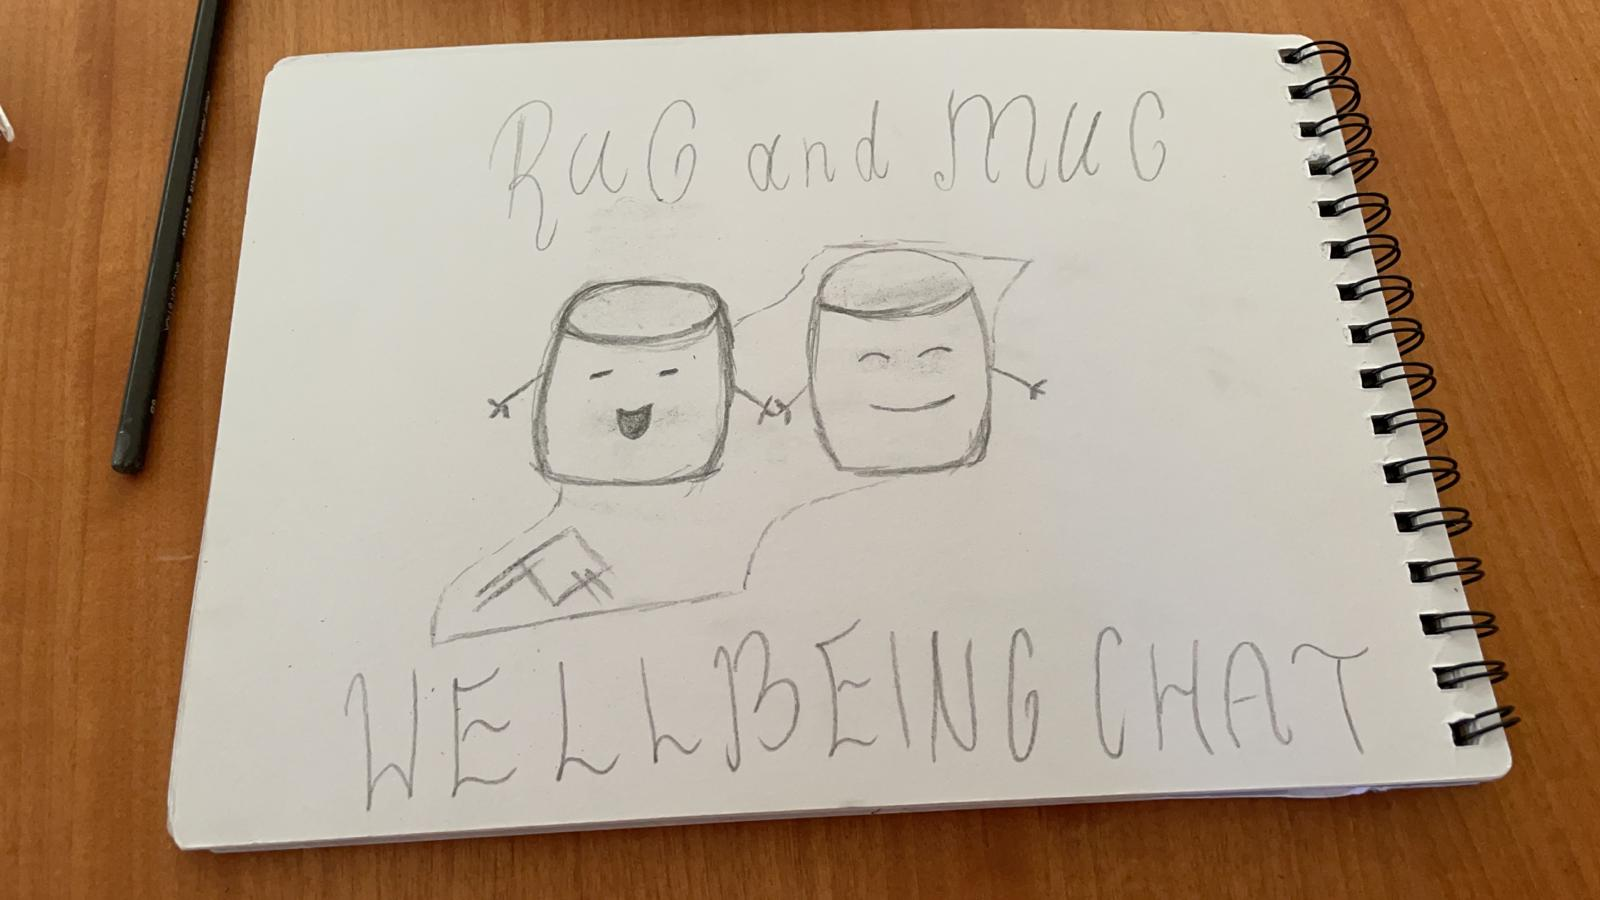 RUG and MUG
WELLBEING CHAT